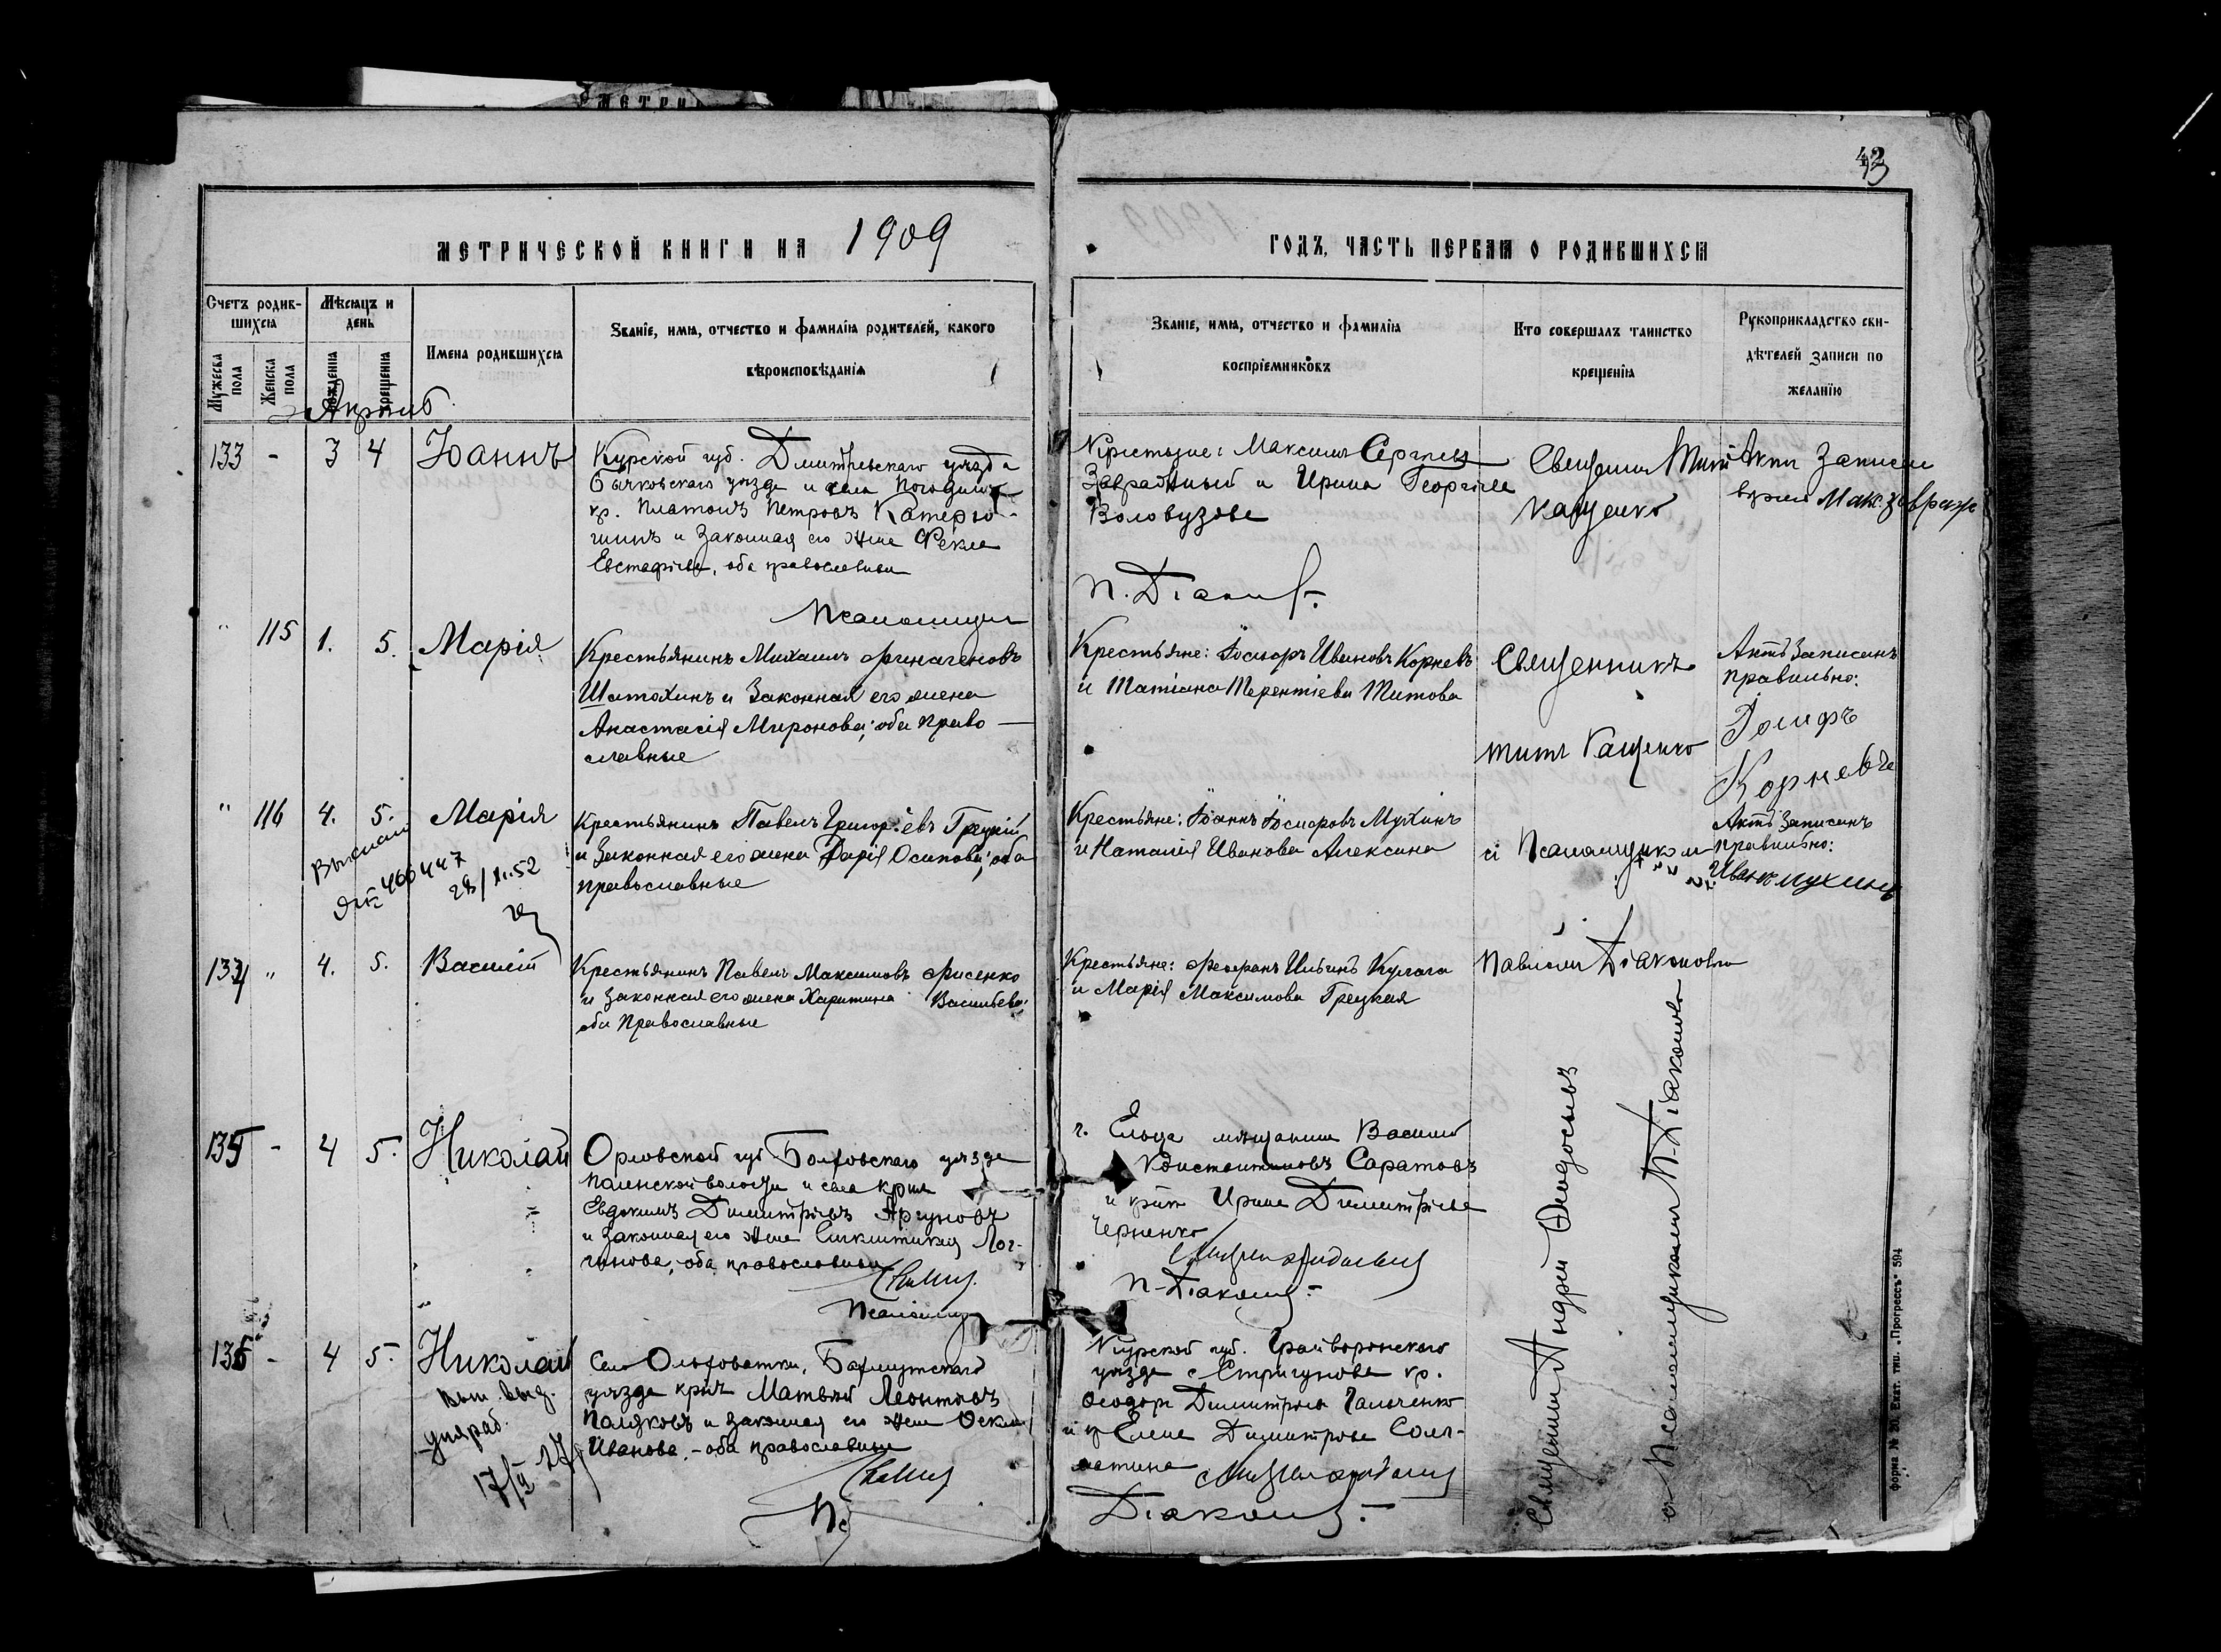 43
МЕТРИЧЕСКОЙ КНИГИ НА 1909
ГОДЪ, ЧАСТЬ ПЕРВАЯ О РОДИВШИХСЯ
Счетъ родив-
шихся
Мужеска пола
Женска пола
Мѣсяцъ и
день
рожденія
крещенія
Имена родившихся
Званіе, имя, отчество и фамилія родителей, какого
вѣроисповѣданія
Званіе, имя, отчество и фамилія
воспріемниковъ
Кто совершалъ таинство
крещенія
Рукоприкладство сви-
дѣтелей записи по
желанію
133 - 3 4 Іоаннъ
Курской губ. Дмитріевскаго уѣзда
уѣзда и села
кр. Платонъ Петровъ Катерю-
гинъ и законная его жена Фекла
Евстафіева, оба православны
Псаломщик
Крестьяне: Максим Сергѣев
Завражный и Ирина Георгіева
Воловузова
П. Діаков.
Священник Тит
Кащенко
Акт записан
верно Мак. Завраж
" 115 1. 5. Марія
Крестьянинъ Михаилъ Финагеновъ
Шатохинъ и законная его жена
Анастасія Миронова; оба право-
славные
Крестьяне: Іосифъ Ивановъ Корневъ
и Татіана Терентіева Титова
Священникъ
Титъ Кащенко
Актъ записанъ
правильно:
Іосифъ
Корневъ
" 116 4. 5. Марія
400447
28/XI.52
Крестьянинъ Павелъ Григоріевъ Грецкій
и законная его жена Дарія Осипова; оба
православные
Крестьяне: Іоаннъ Іосифовъ Мухинъ
и Наталія Иванова Алексина
сі Псаломщиком
Актъ записанъ
правильно:
Иванъ Мухинъ
134 " 4. 5. Василій
Крестьянинъ Павелъ Максимовъ Фисенко
и законная его жена Харитина Васильева;
оба Православные
Крестьяне: Феофанъ Ильинъ Кулага
и Марія Максимова Грецкая
Павлом Діаконовым
135 - 4 5. Николай
Орловской губ Болховскаго уѣзда
волости и села кр-нъ
Евдокимъ Димитріевъ Аргуновъ
и законная его жена Синклитикия Лог-
гинова, оба православны
Псаломщ
г. Ельца мѣщанинъ Василій
Константиновъ Саратовъ
и Ирина Димитріева
Черненко
П. Діаконов.
136 - 4 5. Николай
17/II 27
Село Ольховатки, Бахмутскаго
уѣзда кр-нъ Матвѣй Леонтьевъ
Поляковъ и законная его жена Ѳекла
Иванова, - оба православны
Пс
Курской губ. Грайворонскаго
уѣзда с. Стригунова кр.
Ѳеодоръ Димитріев Гальченко
и кр Елена Димитріева Соло-
матина
Діаконов.
Священник Андрей Ѳеодосьевъ
с Псаломщиком П. Діаконов
форма № 20. Екат. тип. „Прогрессъ“ 594